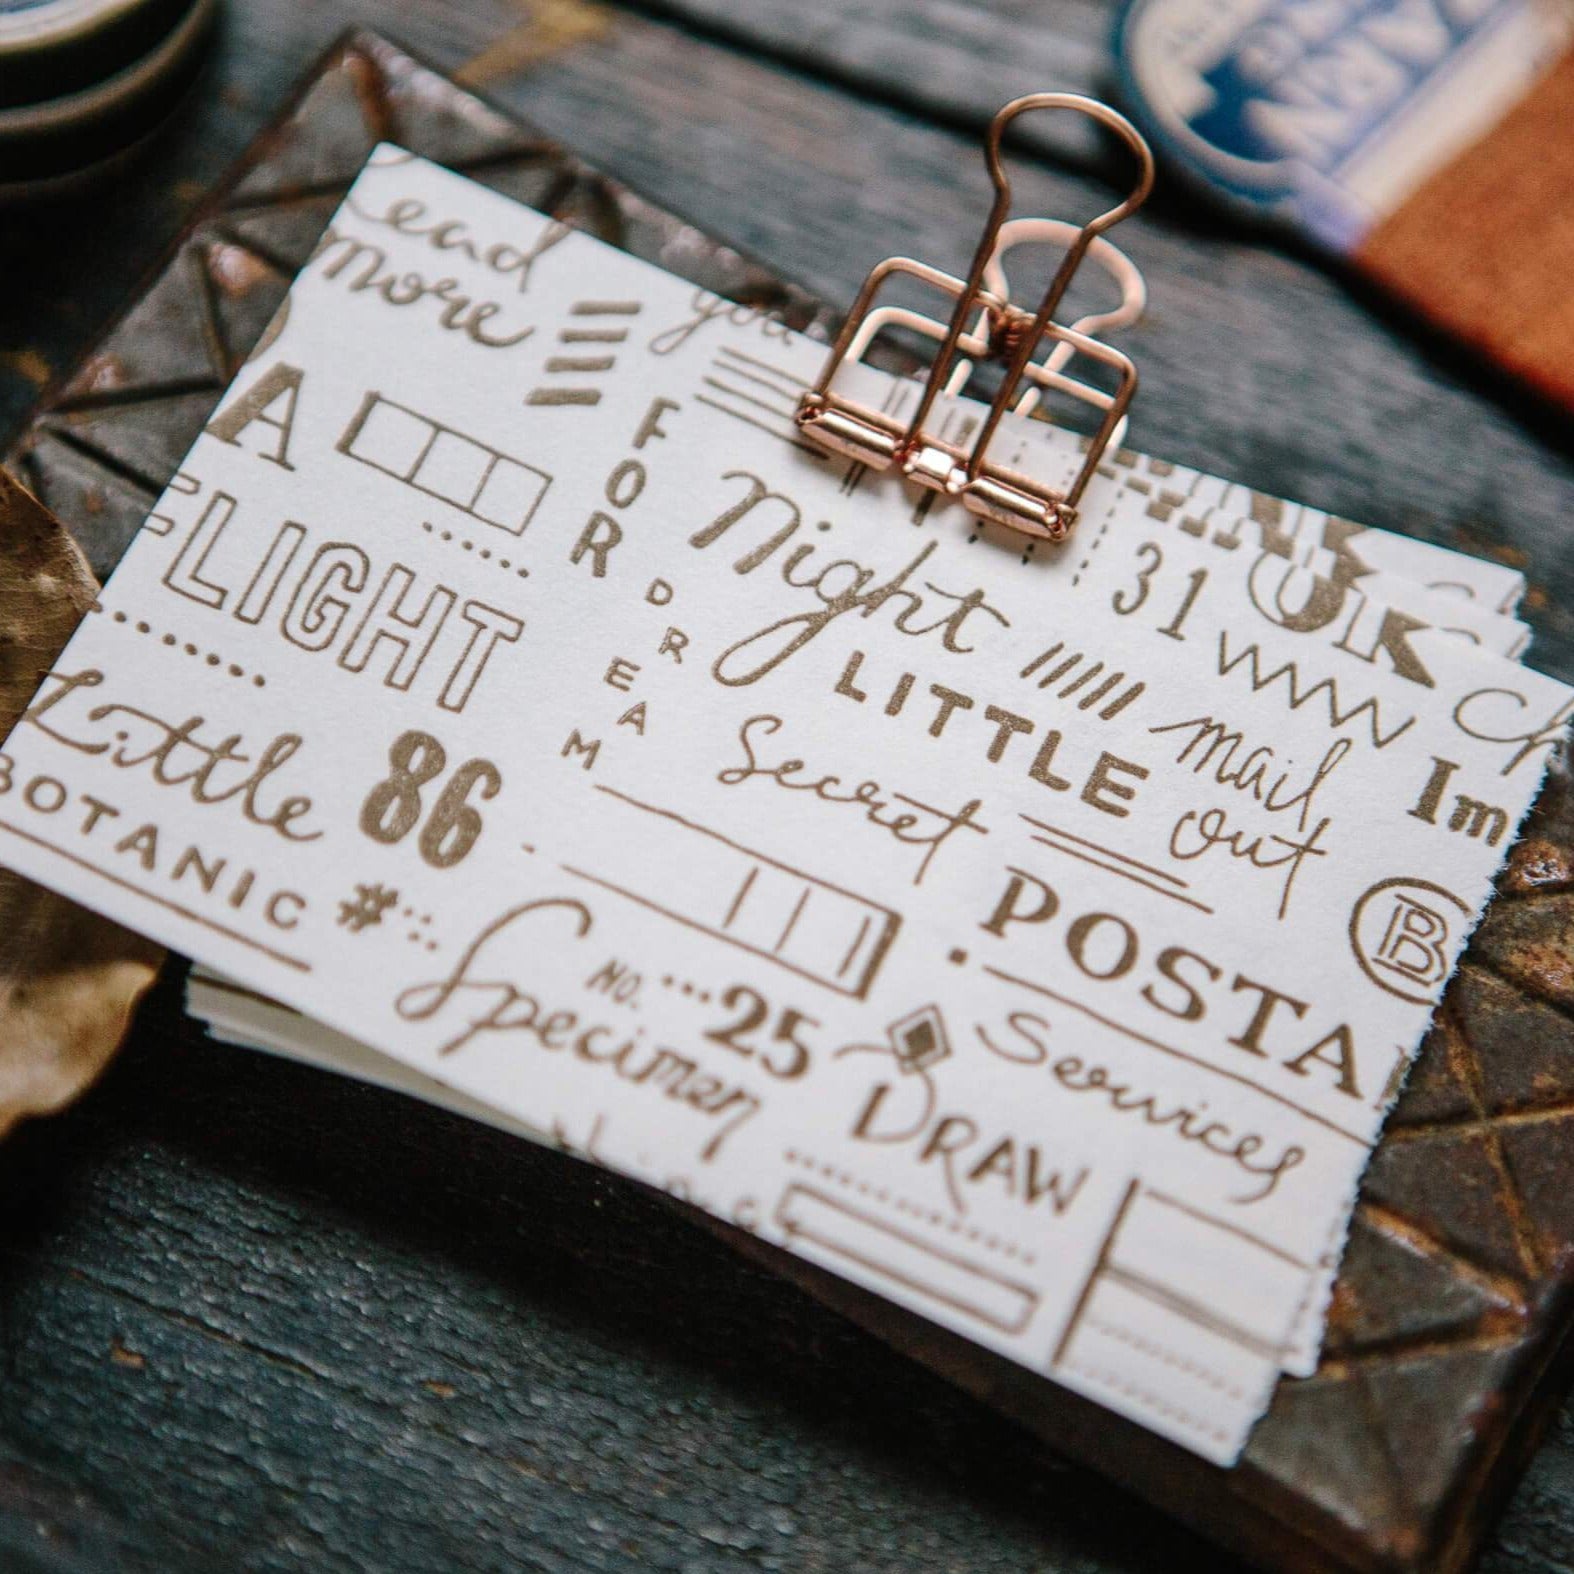 ead
more
you
A
FOR
DREAM
FLIGHT
Night
31
LITTLE
mail
out
Im
Little
86
Secret
BOTANIC
#::
Specimen
NO. ...25
POSTA
B
Services
DRAW
Ch